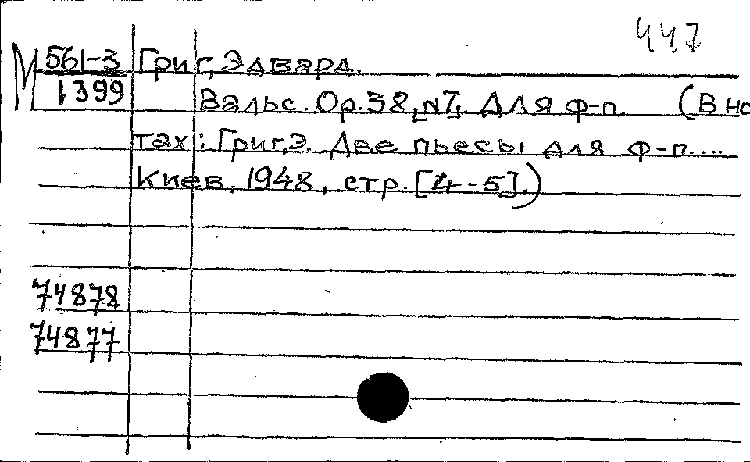 447
М 561-3 Григ, Эдвард.
1399 Вальс. Op.38, N7. Для ф-п. (В но
тах: Григ, Э. Две пьесы для ф-п....
Киев, 1948, стр. [4-5].)
74878
74877